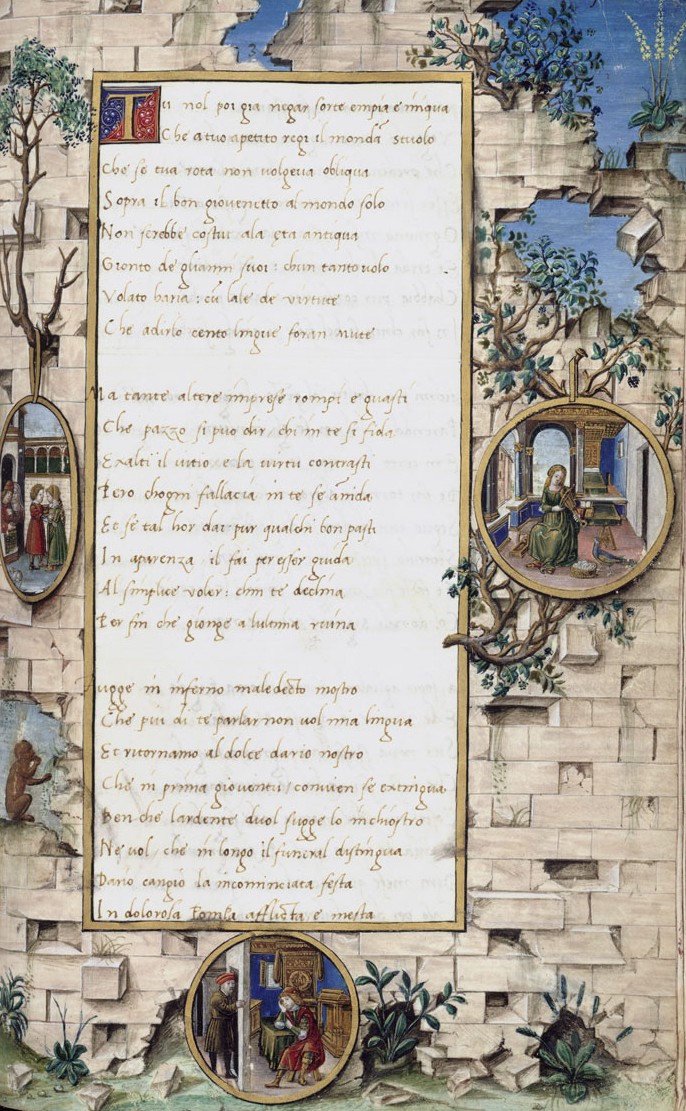 Tu nol poi gia negar sorte empia e iniqua
Che a tuo apetito regi il mondã stuolo
Che se tua rota non volgeva obliqua
Sopra il bon giovenetto al mondo solo
Non serebbe costui ala eta antiqua
Gionto de glianni suoi: chun tanto volo
Volato haria: cũ lale de virtute
Che adirlo cento lingue foran mute
Ma tante altere imprese rompi e guasti
Che pazzo si puo dir chi in te si fida
Exalti il vitio e la virtu contrasti
Pero chogni fallacia in te se anida
Et se tal hor dai pur qualchi bon pasti
In aparenza il fai per esser guida
Al simplice voler: chin te declina
Per fin che gionge a lultima ruina
Fugge in inferno maledecto mostro
Che piu di te parlar non vol mia lingua
Et ritornamo al dolce dario nostro
Che in prima gioventu conven se extingua
Ben che lardente duol sugge lo inchiostro
Ne vol, che in longo il funeral distingua
Dario cangio la incominciata festa
In dolorosa Pompa afflicta e mesta